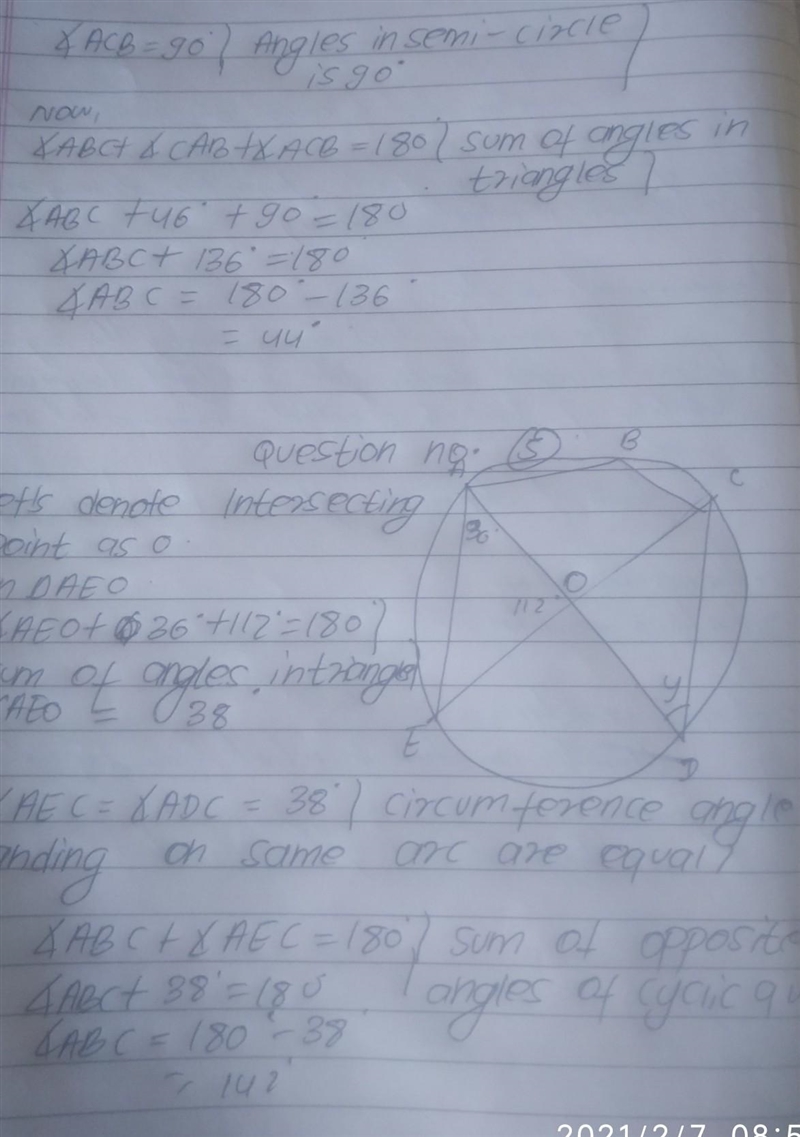 ∡ACB = 90° ( Angles in semi-circle
is 90° )
NOW,
∡ABC + ∡CAB + ∡ACB = 180 ( sum of angles in
triangles )
∡ABC + 46° + 90° = 180
∡ABC + 136° = 180°
∡ABC = 180° - 136°
= 44°
Question no. 5
denote Intersecting
point as O.
AEO
AEO + 36° + 112° = 180 )
of angles in
AEO = 38°
A
B
C
36°
O
112°
y
E
D
∡AEC = ∡ADC = 38° ) circumference angle
on same arc are equal )
∡ABC + ∡AEC = 180° ) sum of opposite
∡ABC + 38° = 180 ( angles of cyclic
∡ABC = 180° - 38°
= 142°
2021/2/7 08:5